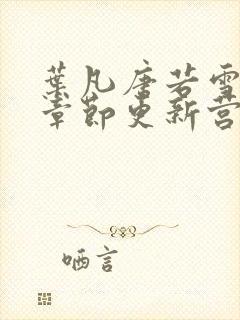 葉凡唐若雪
章節更新營
哂言